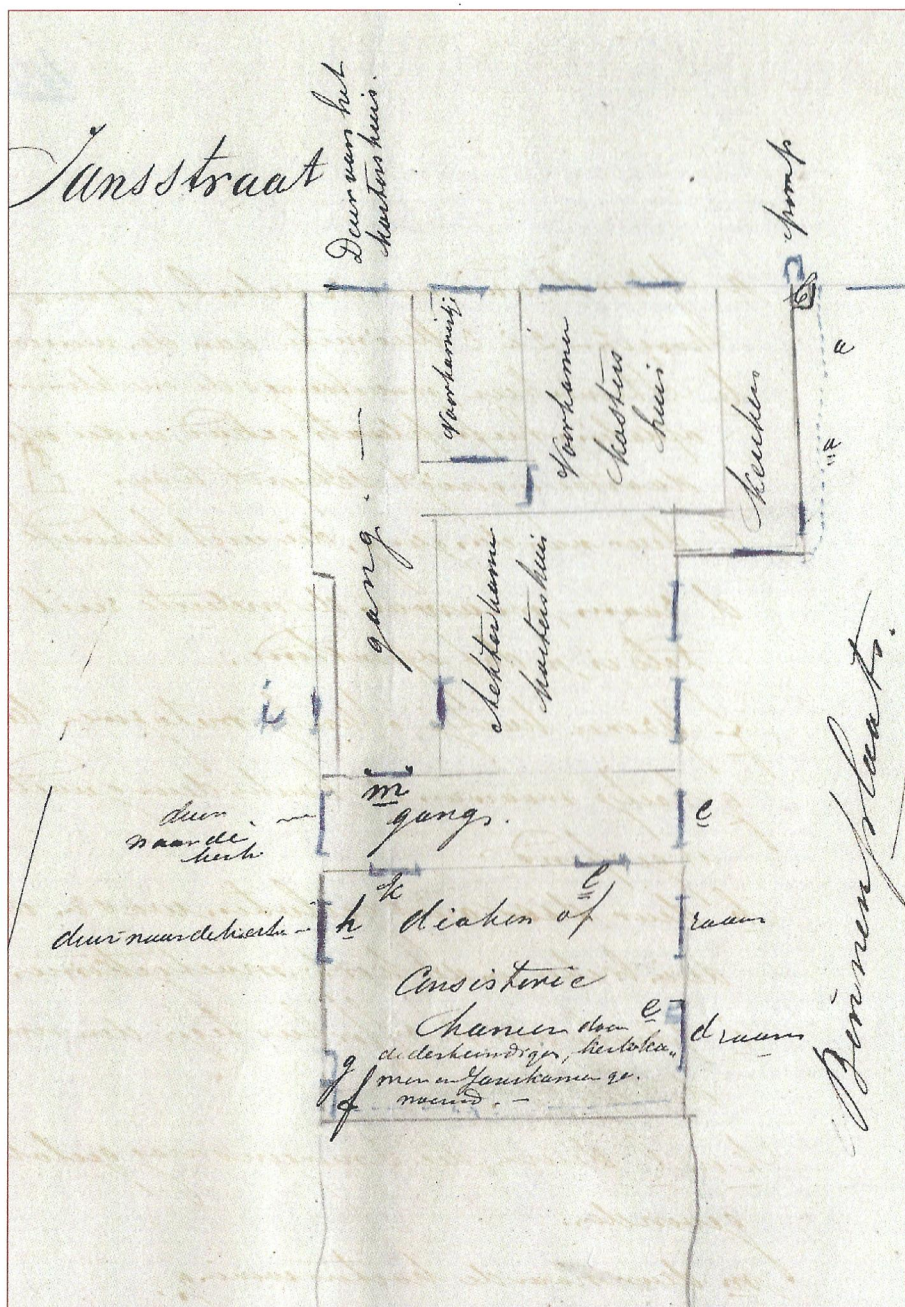 Jansstraat
Deur van het
kosters huis.
pomp
Voorkamertje
Voorkamer
kosters
huis
keuken
a
a
gang. —
Achterkamer
kostershuis
i
m
gang.
deur
naar de
kerk
e
k
l
deur naar de kerk
h diaken of
raam
Consistorie
kamer door
e
d raam
deskundigen, kerkeka„
mer en Janskamer ge„
noemd. —
g
f
Binnenplaats.